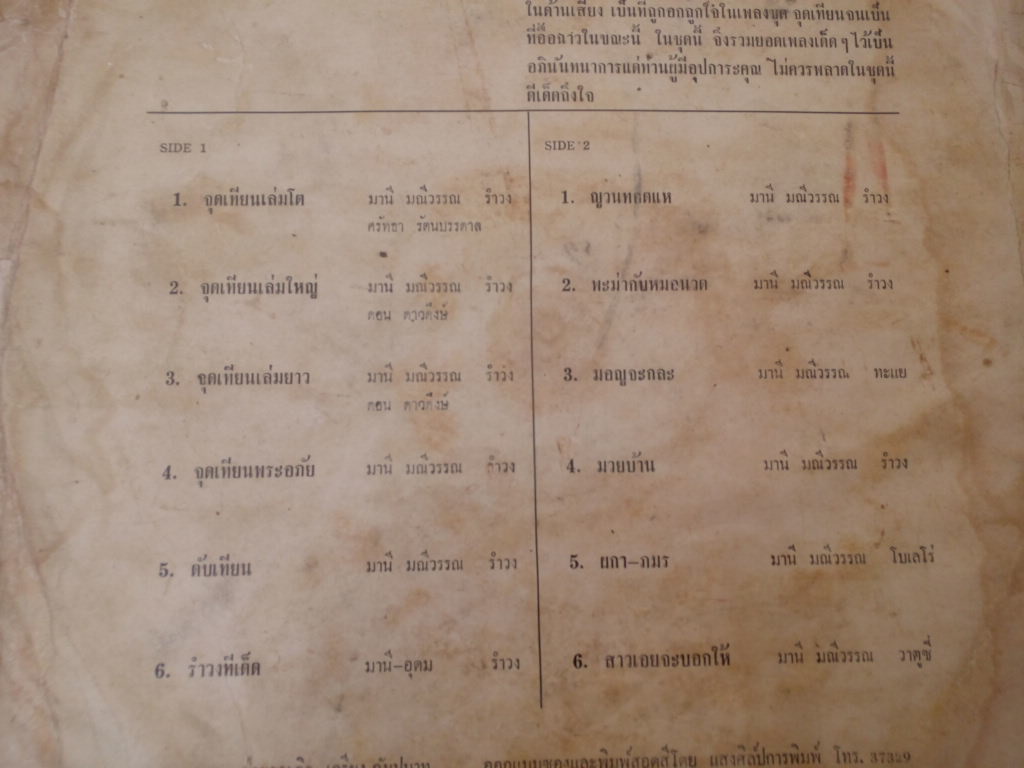 ในด้านเสียง เป็นที่ถูกอกถูกใจในเพลงชุด จุดเทียนจนเป็น
ที่ลือกว่าในขณะนี้ ในชุดนี้ จึงรวมยอดเพลงเด็ด ๆ ไว้เป็น
อภินันทนาการแด่ท่านผู้มีอุปการะคุณ ไม่ควรพลาดในชุดนี้
ดีเด็ดถึงใจ
SIDE 1
1. จุดเทียนเล่มโต มานี มณีวรรณ รำวง
ศรัทธา รัตนบรรดาล
2. จุดเทียนเล่มใหญ่ มานี มณีวรรณ รำวง
ดอน ดาวดึงษ์
3. จุดเทียนเล่มยาว มานี มณีวรรณ รำวง
ดอน ดาวดึงษ์
4. จุดเทียนพระอภัย มานี มณีวรรณ รำวง
5. ดับเทียน มานี มณีวรรณ รำวง
6. รำวงทีเด็ด มานี-อุดม รำวง
SIDE 2
1. ญวนทอดแห มานี มณีวรรณ รำวง
2. พะม่ากับหมอนวด มานี มณีวรรณ รำวง
3. มอญจะกละ มานี มณีวรรณ ทะแย
4. มวยบ้าน มานี มณีวรรณ รำวง
5. ผกา-ภมร มานี มณีวรรณ โบเลโร่
6. สาวเอยจะบอกให้ มานี มณีวรรณ วาตูซี่
ออกแบบซองและพิมพ์สอดสีโดย แสงศิลป์การพิมพ์ โทร. 37329